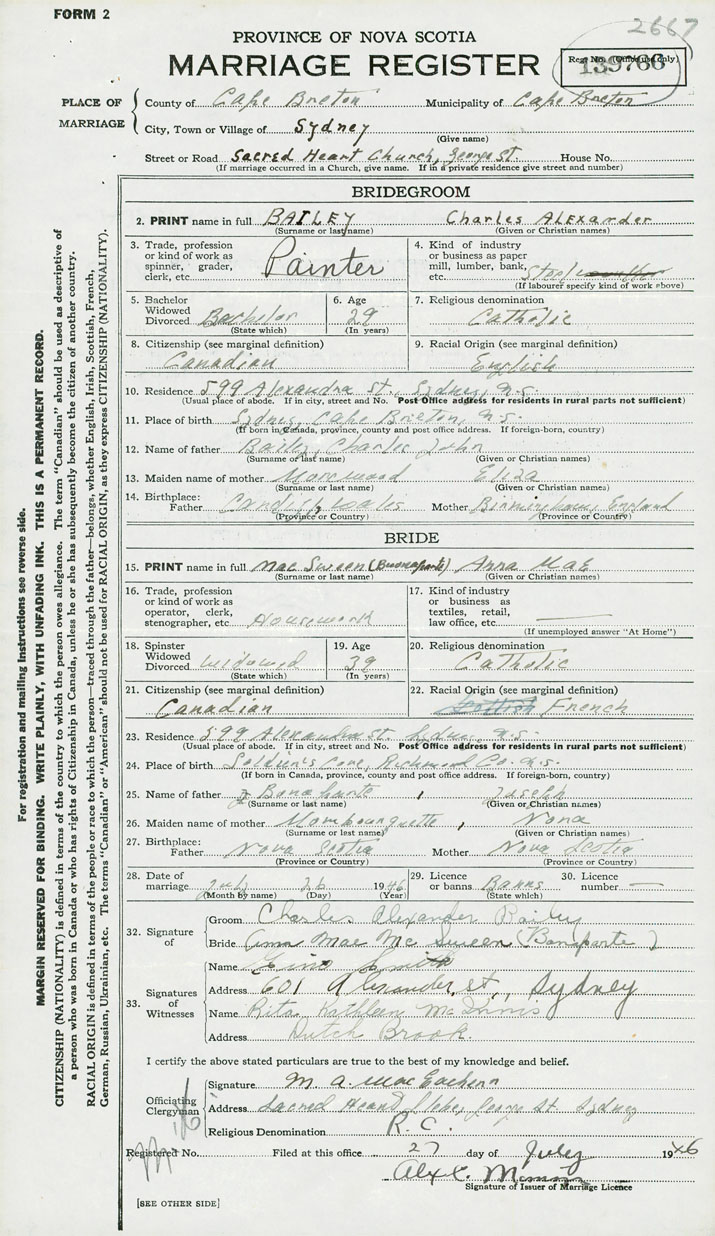 FORM 2
2667
PROVINCE OF NOVA SCOTIA
MARRIAGE REGISTER
Regt No. (Office use only)
139766
PLACE OF MARRIAGE
County of Cape Breton Municipality of Cape Breton
City, Town or Village of Sydney
(Give name)
Street or Road Sacred Heart Church, George St. House No.
(If marriage occurred in a Church, give name. If in a private residence give street and number)
BRIDEGROOM
2. PRINT name in full BAILEY Charles ALExander
(Surname or last name) (Given or Christian names)
3. Trade, profession or kind of work as spinner, grader, clerk, etc. Painter
4. Kind of industry or business as paper mill, lumber, bank, etc. Steel
(If labourer specify kind of work above)
5. Bachelor Widowed Divorced Bachelor
(State which)
6. Age 29
(In years)
7. Religious denomination
Catholic
8. Citizenship (see marginal definition)
Canadian
9. Racial Origin (see marginal definition)
English
10. Residence 599 Alexandra St., Sydney, N.S.
(Usual place of abode. If in city, street and No. Post Office address for residents in rural parts not sufficient)
11. Place of birth Sydney, Cape Breton, N.S.
(If born in Canada, province, county and post office address. If foreign-born, country)
12. Name of father Bailey, Charles John
(Surname or last name) (Given or Christian names)
13. Maiden name of mother Eliza
(Surname or last name) (Given or Christian names)
14. Birthplace: Father Cardiff, Wales Mother Birmingham, England
(Province or Country) (Province or Country)
BRIDE
15. PRINT name in full Mac Sween (Buonaparte) Anna MAE
(Surname or last name) (Given or Christian names)
16. Trade, profession or kind of work as operator, clerk, stenographer, etc Housework
17. Kind of industry or business as textiles, retail, law office, etc.
(If unemployed answer "At Home")
18. Spinster Widowed Divorced Widowed
(State which)
19. Age 39
(In years)
20. Religious denomination
Catholic
21. Citizenship (see marginal definition)
Canadian
22. Racial Origin (see marginal definition)
Scottish French
23. Residence 599 Alexandra St. Sydney, N.S.
(Usual place of abode. If in city, street and No. Post Office address for residents in rural parts not sufficient)
24. Place of birth Soldier's Cove, Richmond Co. N.S.
(If born in Canada, province, county and post office address. If foreign-born, country)
25. Name of father Bonaparte, Joseph
(Surname or last name) (Given or Christian names)
26. Maiden name of mother Mombourquette, Nona
(Surname or last name) (Given or Christian names)
27. Birthplace: Father Nova Scotia Mother Nova Scotia
(Province or Country) (Province or Country)
28. Date of marriage July 26 1946
(Month by name) (Day) (Year)
29. Licence or banns Banns
(State which)
30. Licence number —
32. Signature of
Groom Charles Alexander Bailey
Bride Anna Mae Mc Sween (Bonaparte)
33. Signatures of Witnesses
Name Smith
Address 601 Alexander, St., Sydney
Name Rita Kathleen McInnis
Address Dutch Brook.
I certify the above stated particulars are true to the best of my knowledge and belief.
Officiating Clergyman
Signature M. A. MacEachern
Address Sacred Heart Glebe, George St. Sydney
Religious Denomination R.C.
Registered No. Filed at this office 27 day of July 1946
Alex C.
Signature of Issuer of Marriage Licence
[SEE OTHER SIDE]
For registration and mailing instructions see reverse side.
MARGIN RESERVED FOR BINDING. WRITE PLAINLY, WITH UNFADING INK. THIS IS A PERMANENT RECORD.
CITIZENSHIP (NATIONALITY) is defined in terms of the country to which the person owes allegiance. The term "Canadian" should be used as descriptive of
a person who was born in Canada or who has rights of Citizenship in Canada, unless he or she has subsequently become the citizen of another country.
RACIAL ORIGIN is defined in terms of the people or race to which the person—traced through the father—belongs, whether English, Irish, Scottish, French,
German, Russian, Ukrainian, etc. The terms "Canadian" or "American" should not be used for RACIAL ORIGIN, as they express CITIZENSHIP (NATIONALITY).